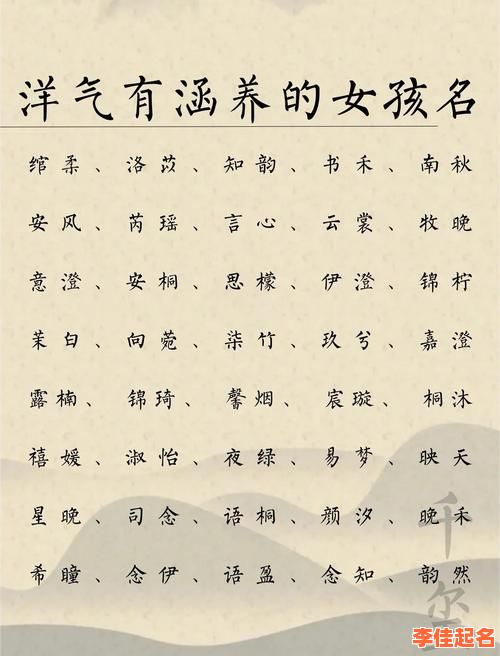 洋气有涵养的女孩名
绾柔、洛苡、知韵、书禾、南秋
安风、芮瑶、言心、云裳、牧晚
意澄、安桐、思檬、伊澄、锦柠
茉白、向菀、柒竹、玖兮、嘉澄
露楠、锦琦、馨烟、宸璇、桐沐
禧媛、淑怡、夜绿、易梦、映天
星晚、司念、语桐、颜汐、晚禾
希瞳、念伊、语盈、念知、韵然
千尔
李佳起名